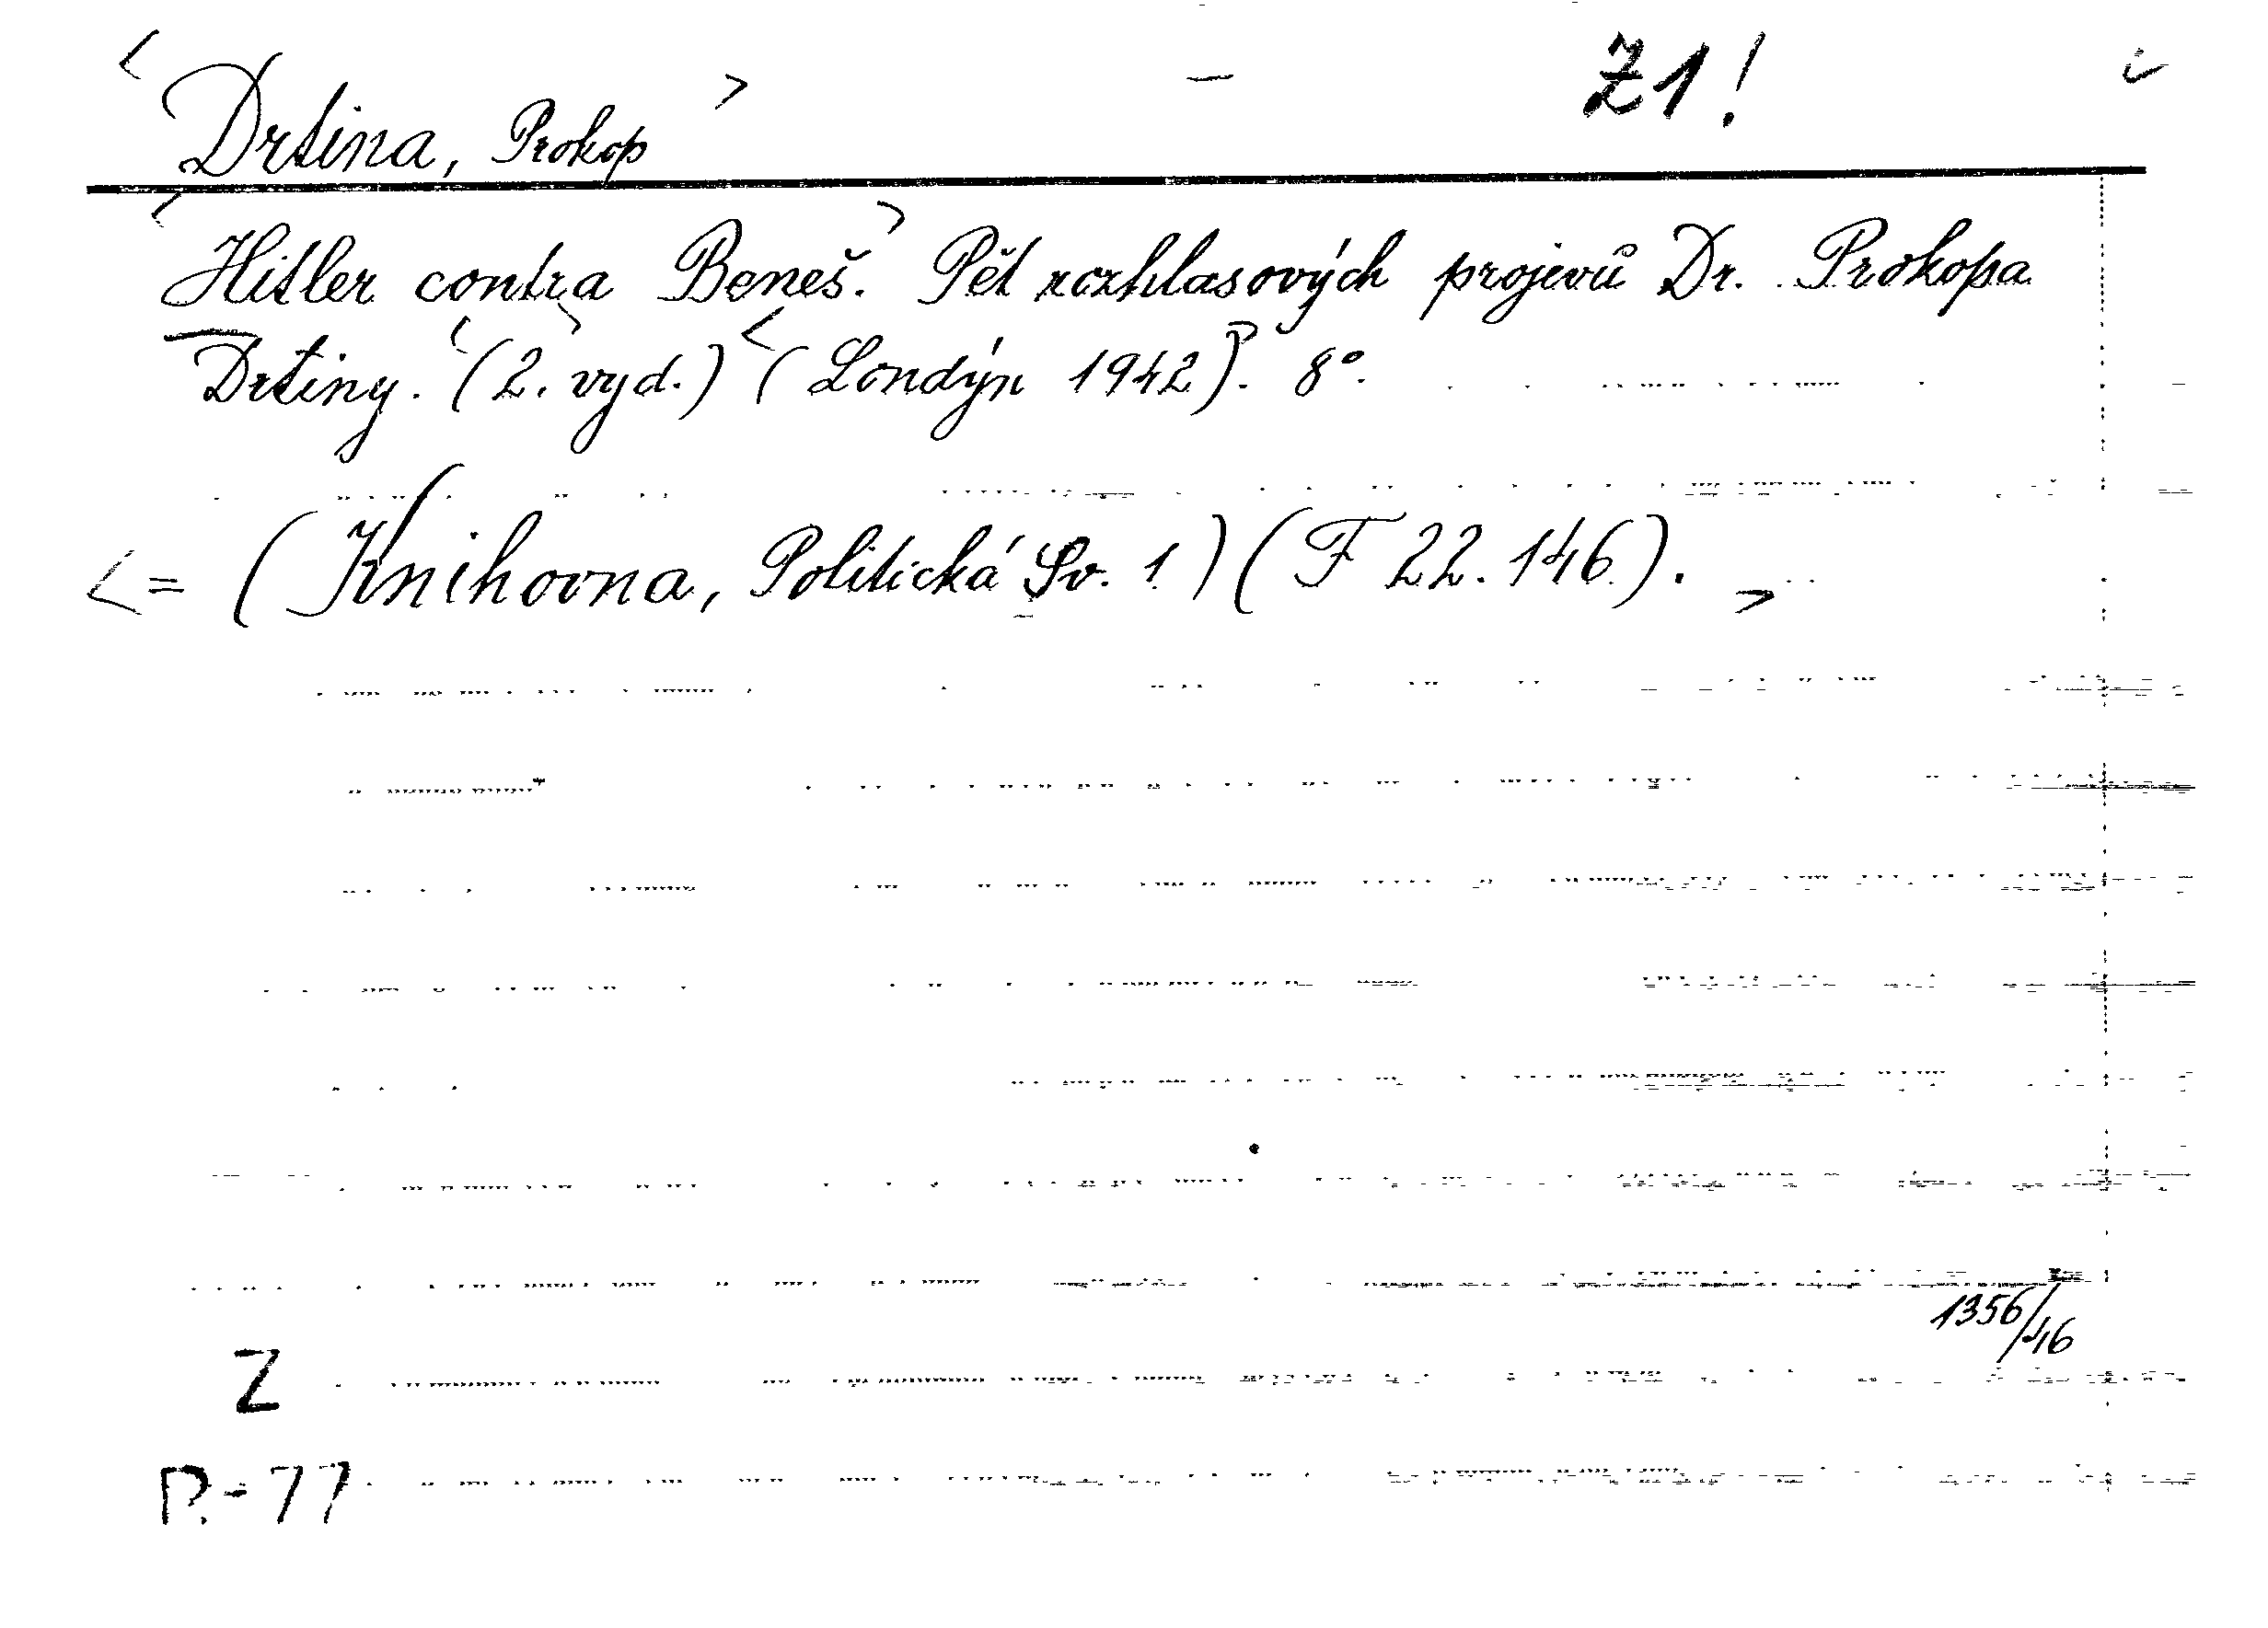 <Drtina, Prokop> - Z1!
<Hitler contra Beneš.> Pět rozhlasových projevů Dr. Prokopa
Drtiny. <(2. vyd.)> <(Londýn 1942)>. 8°.
<= (Knihovna, Politická Sv. 1) (F 22.146). >
1356/46
Z
R-77